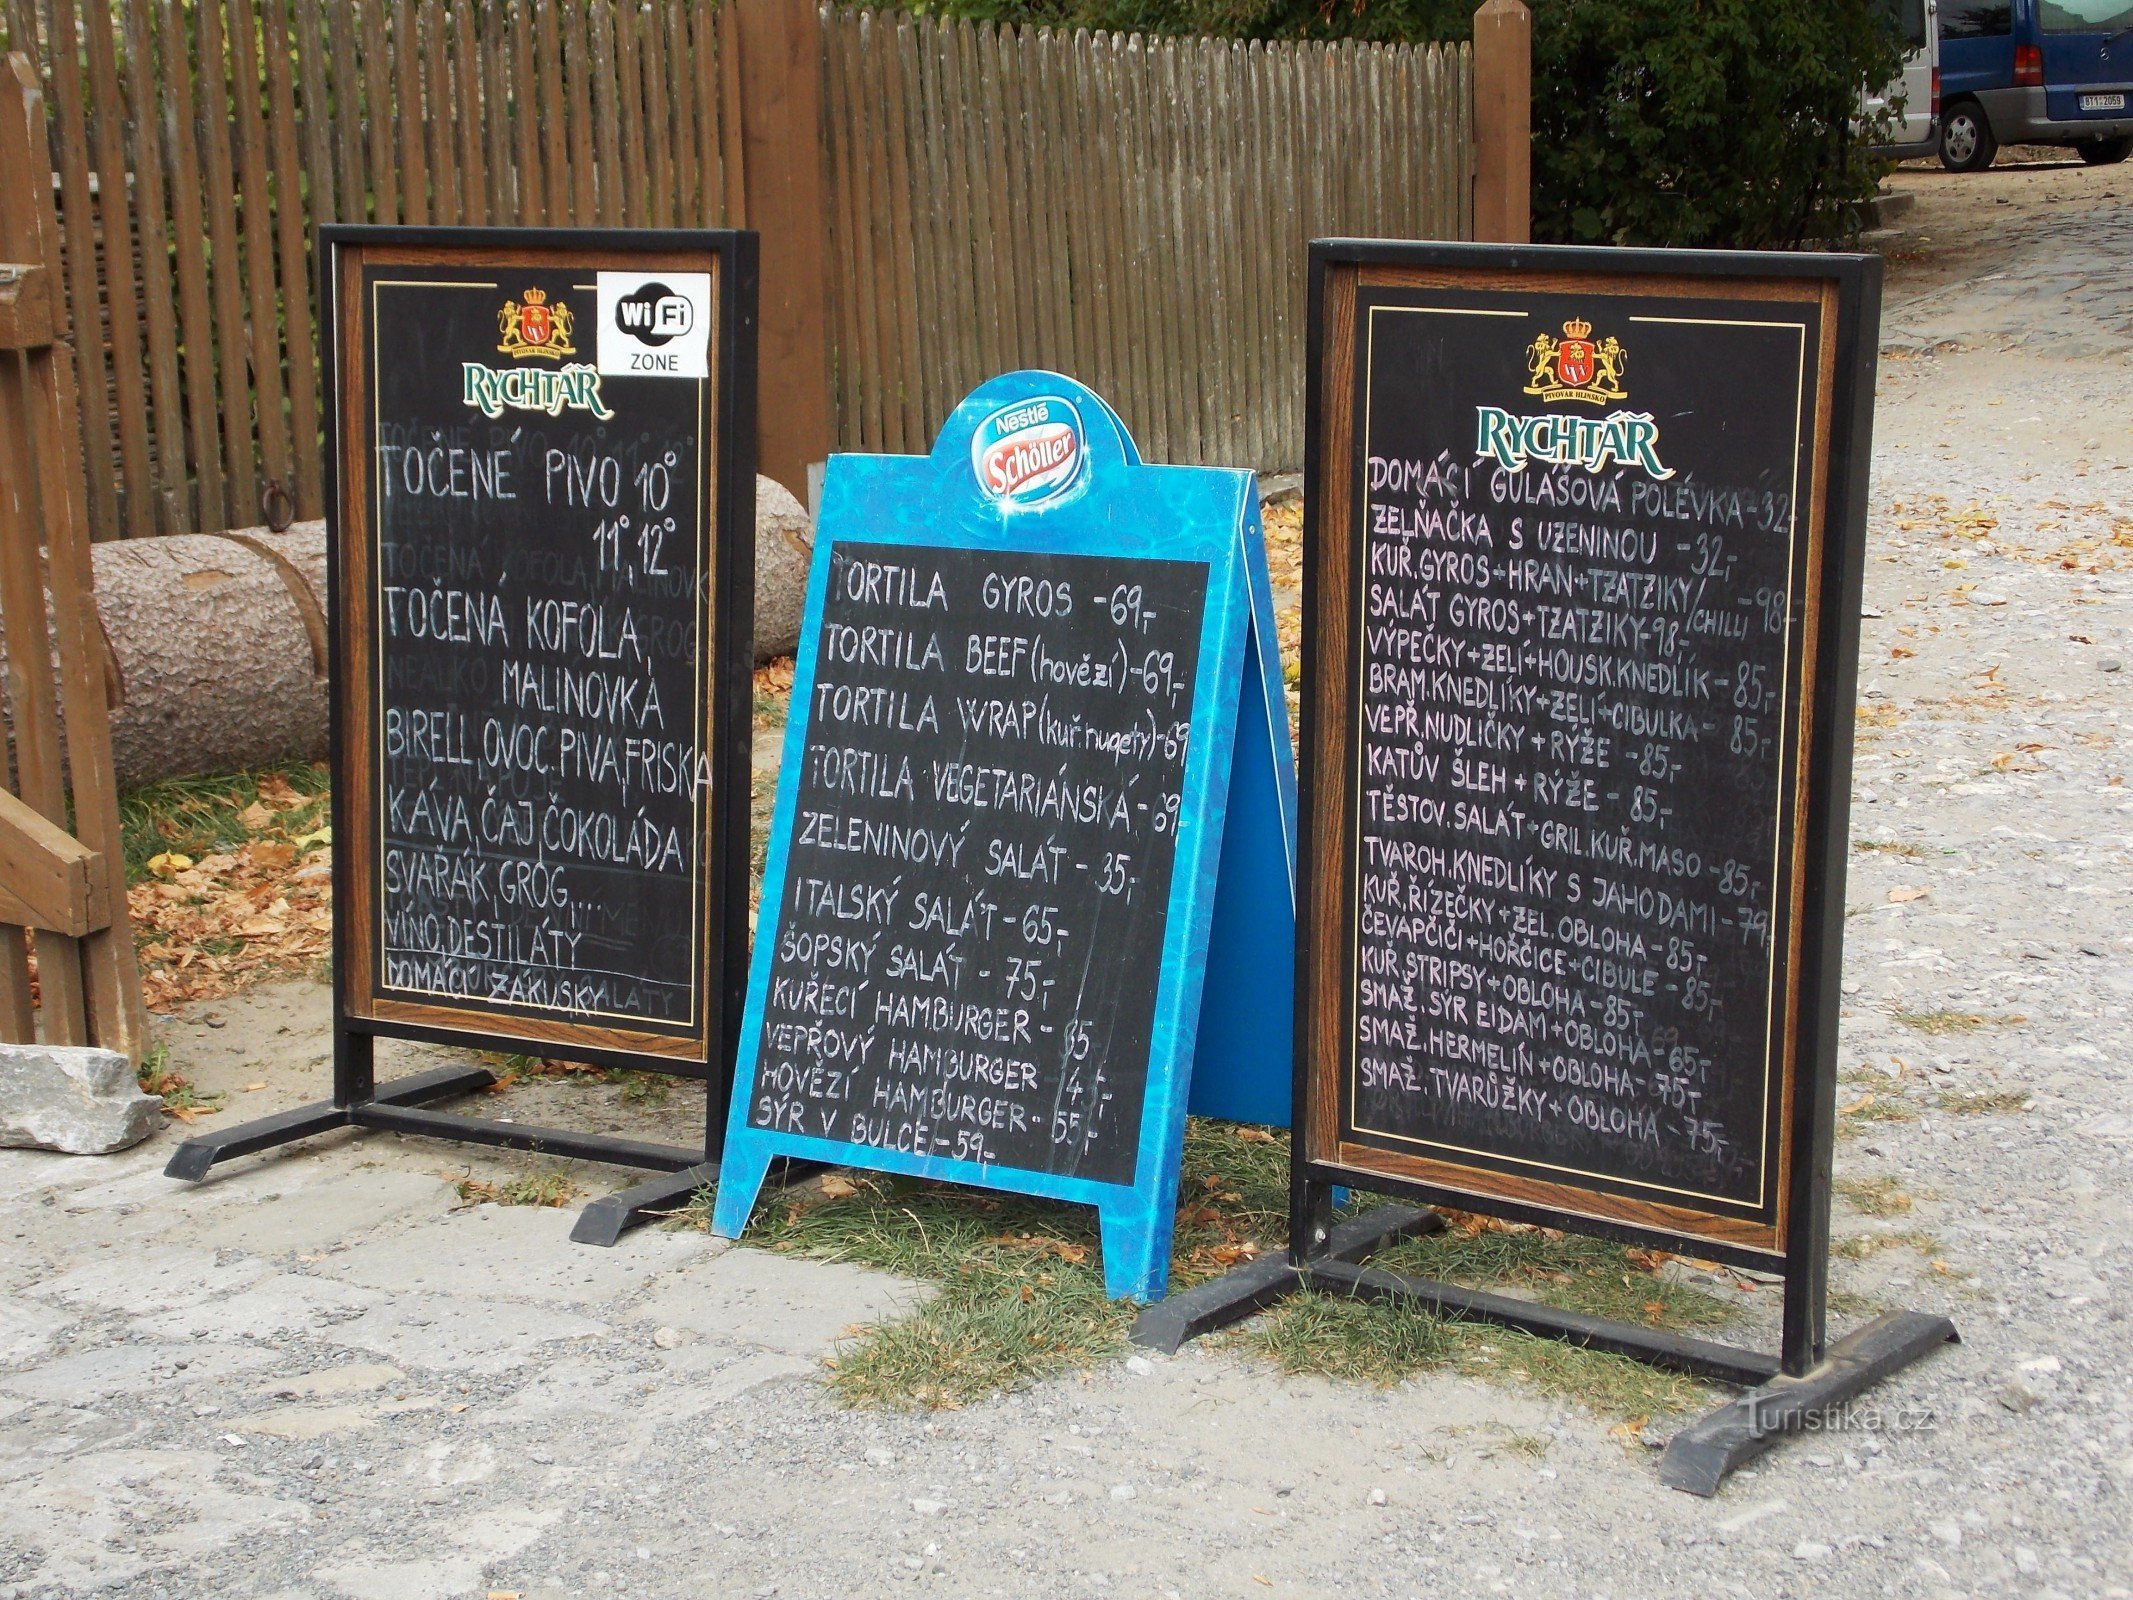 PIVOVAR HLINSKO
RYCHTÁŘ
WiFi
ZONE
TOČENÉ PIVO 10°
11°, 12°
TOČENÁ KOFOLA,
MALINOVKA
BIRELL, OVOC. PIVA, FRISKA
KÁVA, ČAJ, ČOKOLÁDA
SVAŘÁK, GROG....
VÍNO, DESTILÁTY
DOMÁCÍ ZÁKUSKY
Nestlé
Schöller
TORTILA GYROS -69,-
TORTILA BEEF (hovězí) -69,-
TORTILA WRAP (kuř. nugety) -69
TORTILA VEGETARIÁNSKÁ -69,-
ZELENINOVÝ SALÁT - 35,-
ITALSKÝ SALÁT - 65,-
ŠOPSKÝ SALÁT - 75,-
KUŘECÍ HAMBURGER -
VEPŘOVÝ HAMBURGER
HOVĚZÍ HAMBURGER - 55,-
SÝR V BULCE - 59,-
PIVOVAR HLINSKO
RYCHTÁŘ
DOMÁCÍ GULÁŠOVÁ POLÉVKA -32,-
ZELŇAČKA S UZENINOU -32,-
KUŘ. GYROS + HRAN + TZATZIKY/CHILLI -98,-
SALÁT GYROS + TZATZIKY -98,-
VÝPEČKY + ZELÍ + HOUSK. KNEDLÍK - 85,-
BRAM. KNEDLÍKY + ZELÍ + CIBULKA - 85,-
VEPŘ. NUDLIČKY + RÝŽE - 85,-
KATŮV ŠLEH + RÝŽE - 85,-
TĚSTOV. SALÁT + GRIL. KUŘ. MASO - 85,-
TVAROH. KNEDLÍKY S JAHODAMI - 79,-
KUŘ. ŘÍZEČKY + ZEL. OBLOHA - 85,-
ČEVAPČIČI + HOŘČICE + CIBULE - 85,-
KUŘ. STRIPSY + OBLOHA - 85,-
SMAŽ. SÝR EIDAM + OBLOHA - 65,-
SMAŽ. HERMELÍN + OBLOHA - 75,-
SMAŽ. TVARŮŽKY + OBLOHA - 75,-
8T1 2059
Turistika.cz